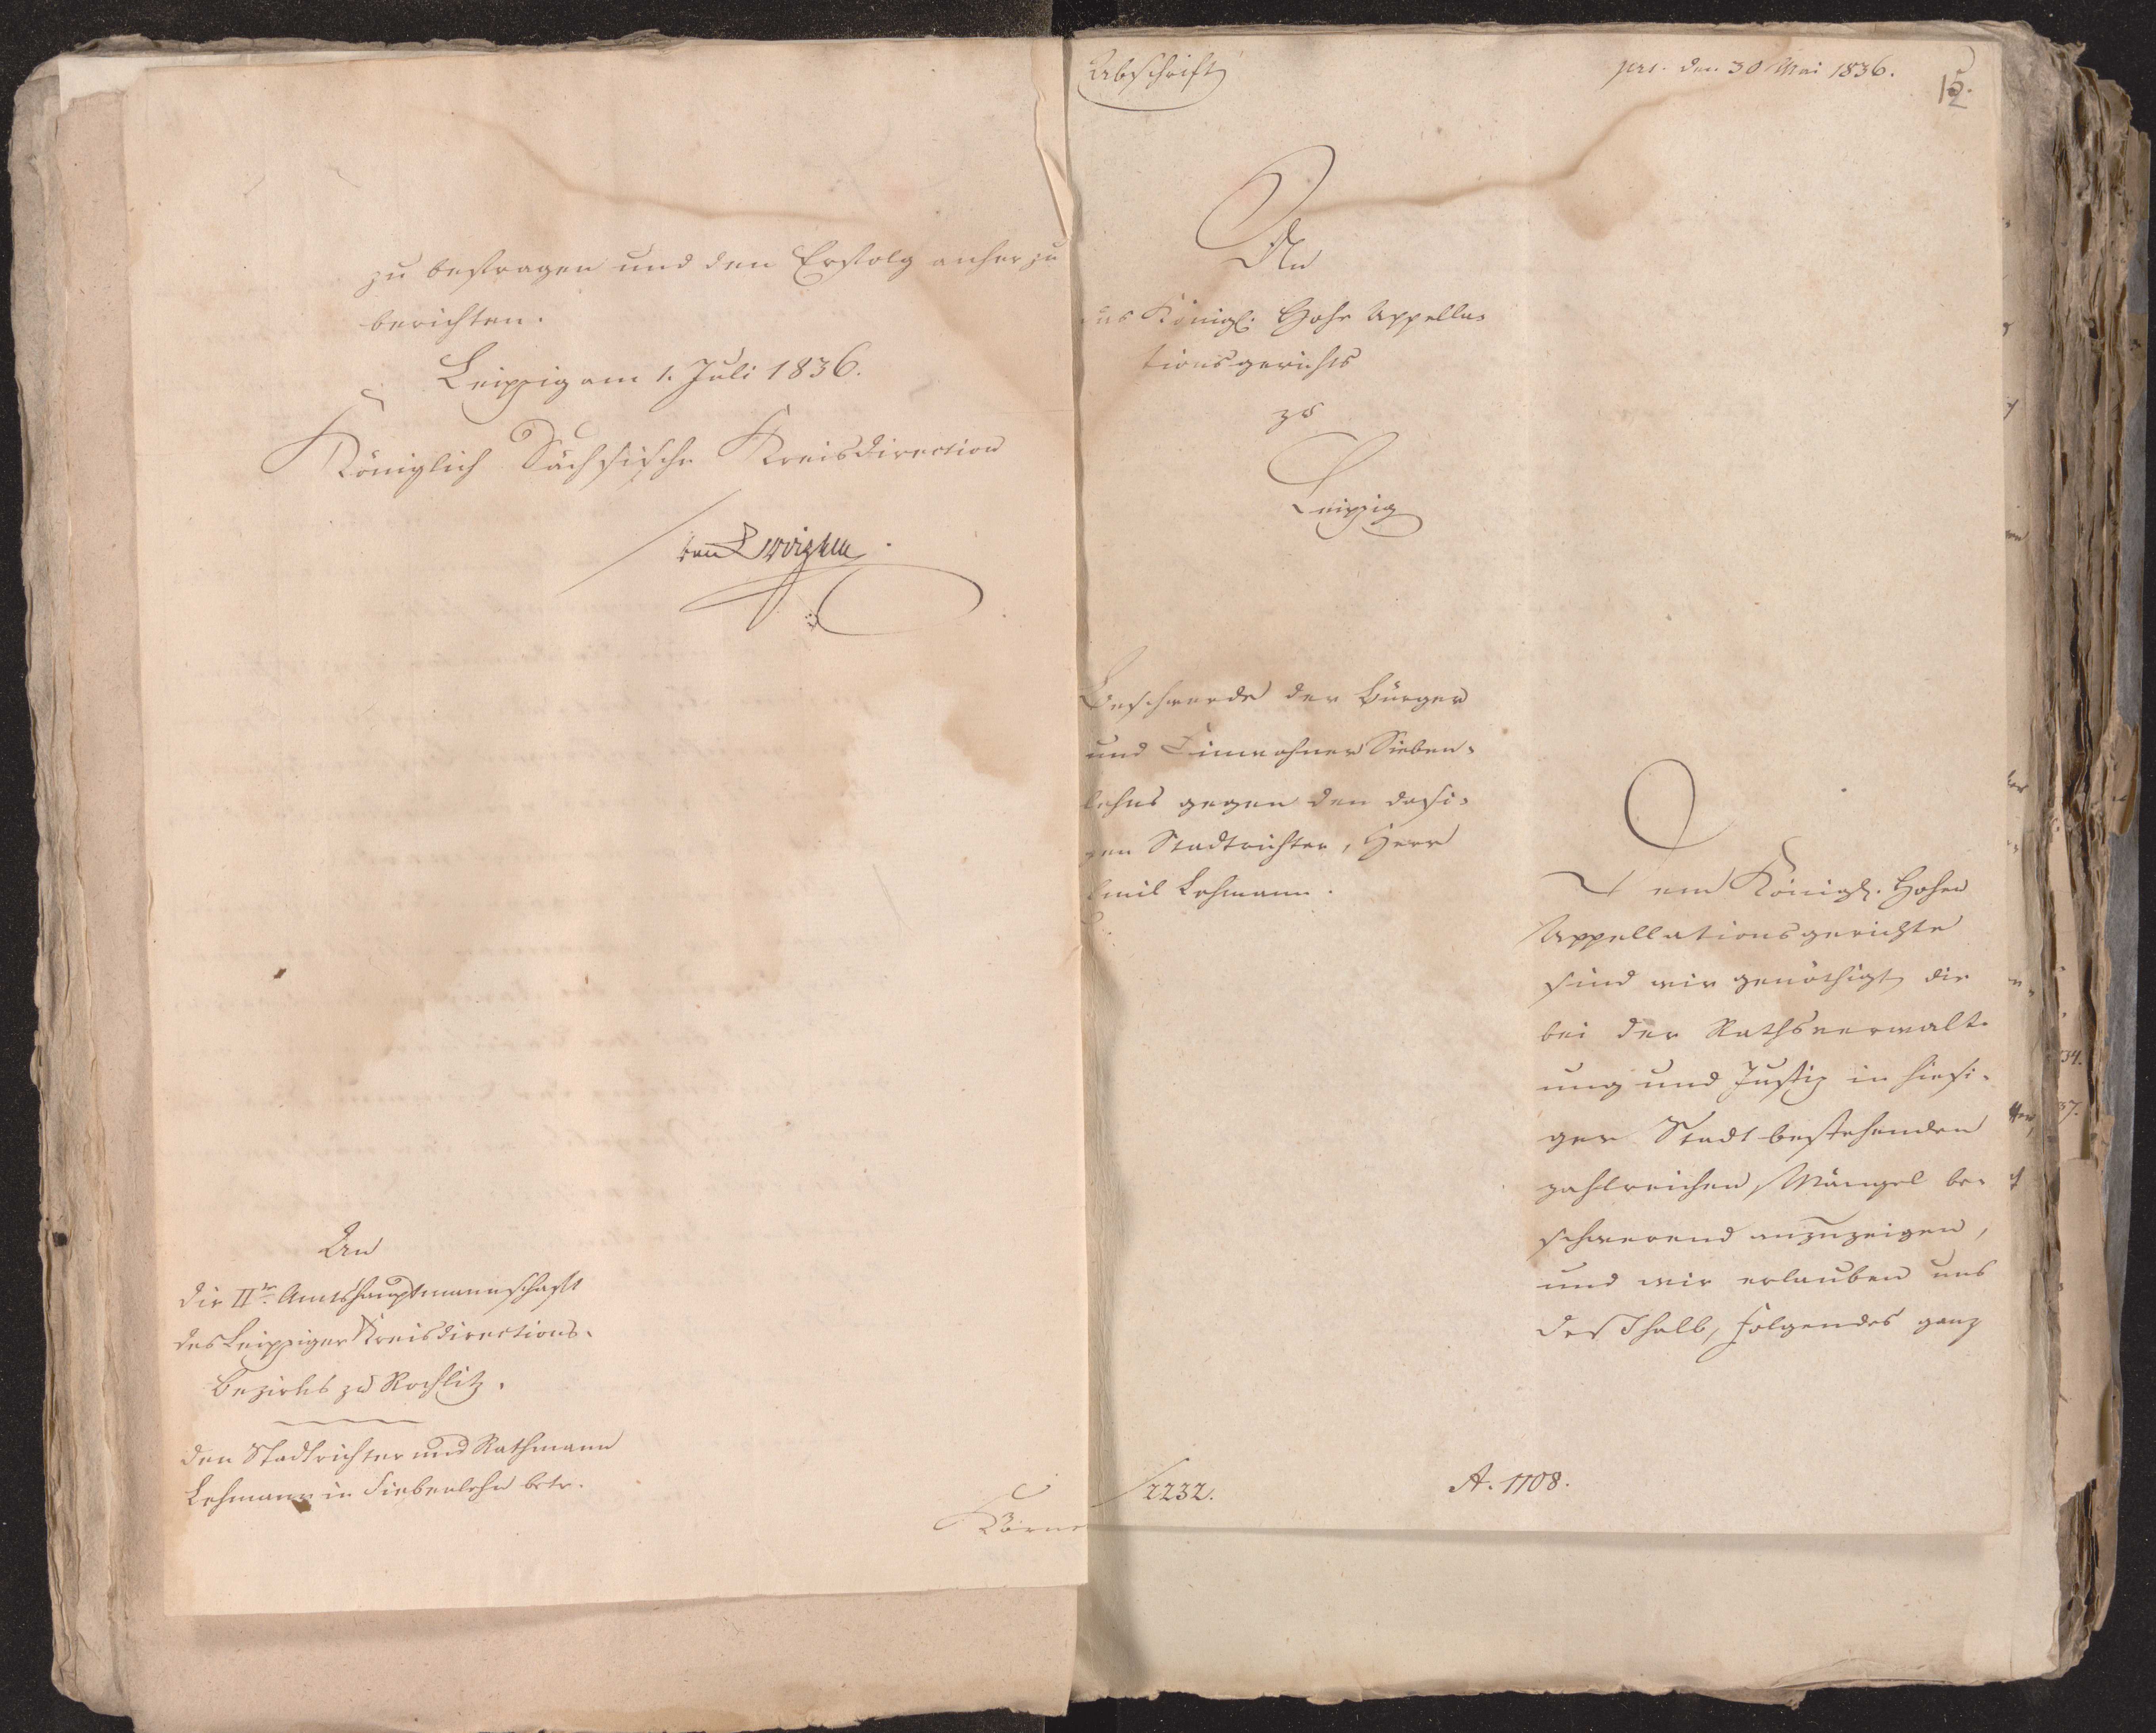 zu befragen und den Erfolg anher zu
berichten.
Leipzig am 1. Juli 1836.
Königlich Sächsische Kreisdirection
An
die IIte. Amtshauptmannschaft
des Leipziger Kreisdirections-
bezirks zu Rochlitz.
den Stadtrichter und Rathmann
Lehmann in Siebenlehn betr.
Abschrift
prs. den 30 Mai 1836.
12.
An
das Königl. Hohe Appella-
tionsgericht
zu
Leipzig
Beschwerde der Bürger
und Einwohner Sieben-
lehns gegen den dasi-
gen Stadtrichter, Herr
Emil Lehmann.
Dem Königl. Hohen
Appellationsgerichte
sind wir genöthigt, die
bei der Rathsverwalt-
ung und Justiz in hiesi-
ger Stadt bestehenden
zahlreichen Mängel be-
schwerend anzuzeigen,
und wir erlauben uns
deßhalb, folgendes ganz
2232.
A. 1108.